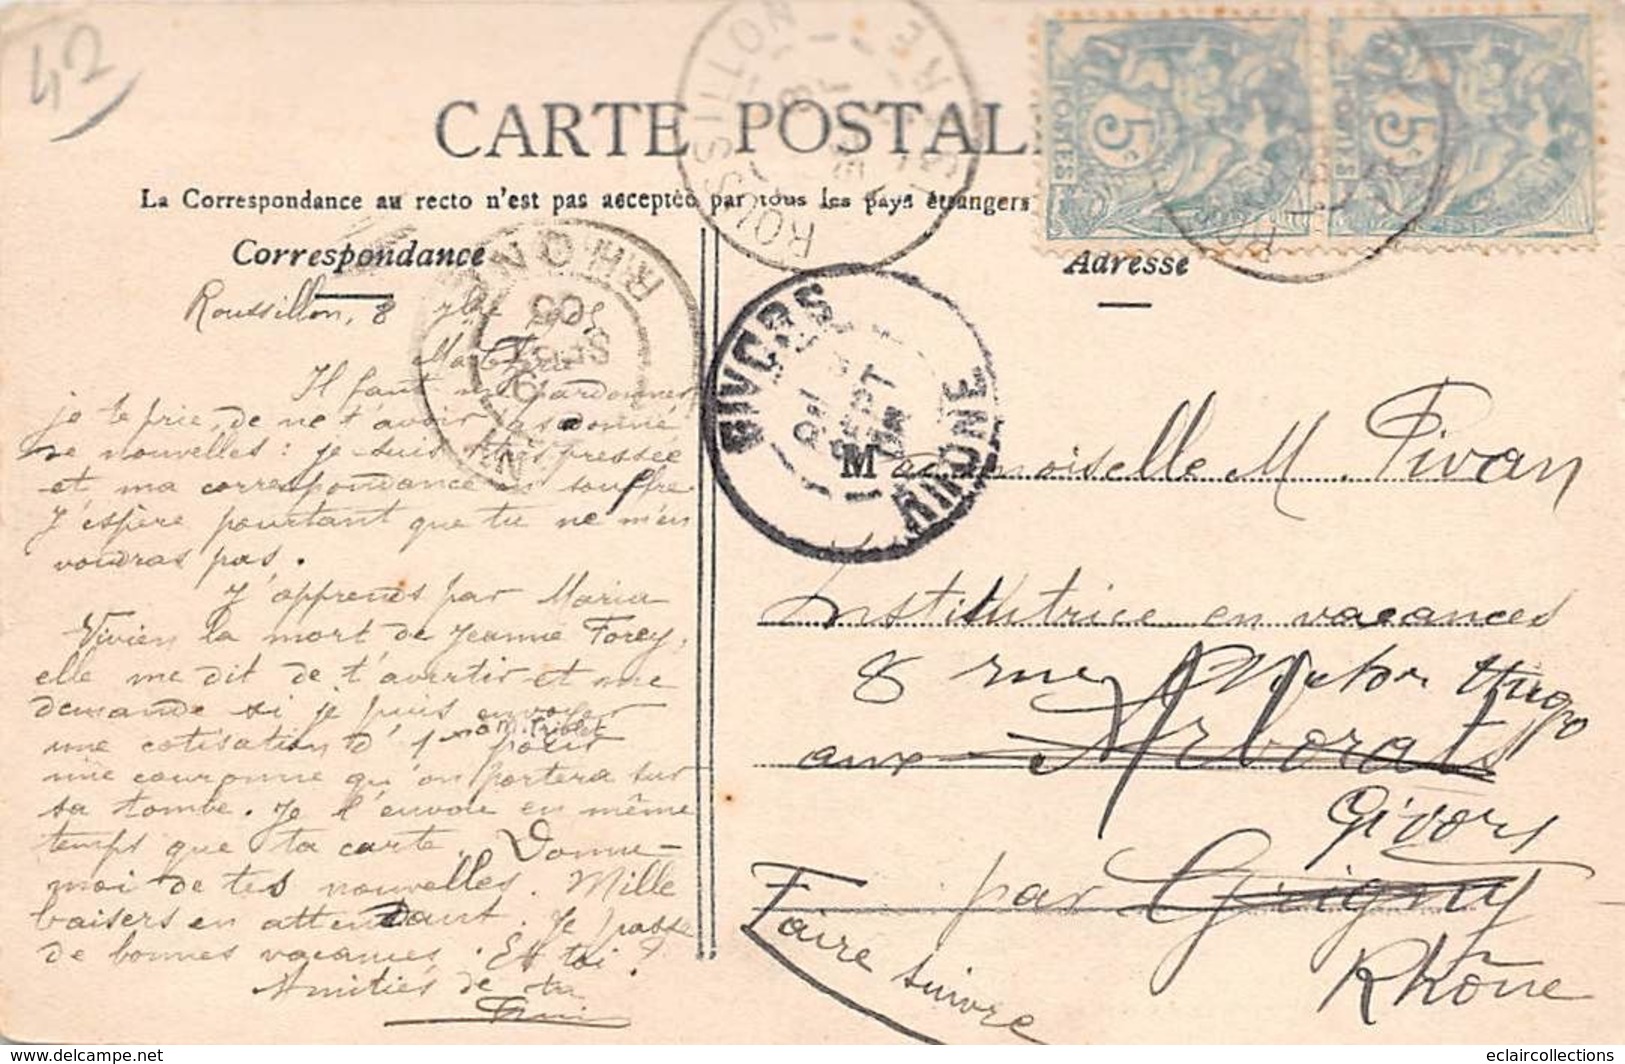 42
CARTE POSTALE
La Correspondance au recto n'est pas acceptée par tous les pays étrangers
Correspondance
Adresse
Roussillon, 8 7bre 1905
Il faut me pardonner
je te prie, de ne t'avoir pas donné
de nouvelles : je suis très pressée
et ma correspondance en souffre
J'espère pourtant que tu ne m'en
voudras pas.
J'apprends par Maria
Vivien la mort de Jeanne Forey,
elle me dit de t'avertir et me
demande si je puis envoyer
à M. Triolet
une cotisation d' 1 pour
une couronne qu'on portera sur
sa tombe. Je l'envoie en même
temps que ta carte. Donne-
moi de tes nouvelles. Mille
baisers en attendant. Je passe
de bonnes vacances. Et toi ?
Amitiés de ta
Mademoiselle M. Pivan
Institutrice en vacances
8 rue Victor Hugo
aux Arborats
Givors
par Grigny
Rhône
Faire suivre
ROUSSILLON
ISÈRE
GIVORS
RHONE
SEPT
RHONE
SEPT
05
5c
POSTES
5c
POSTES
www.delcampe.net
eclaircollections